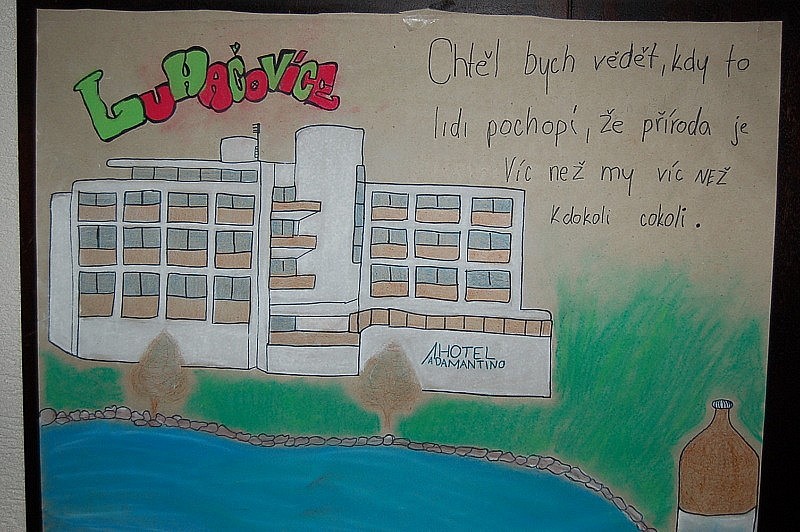 LUHAČOVÍCE
Chtěl bych vědět, kdy to
lidi pochopí, že příroda je
Víc než my víc NEŽ
kdokoli cokoli.
HOTEL
ADAMANTINO